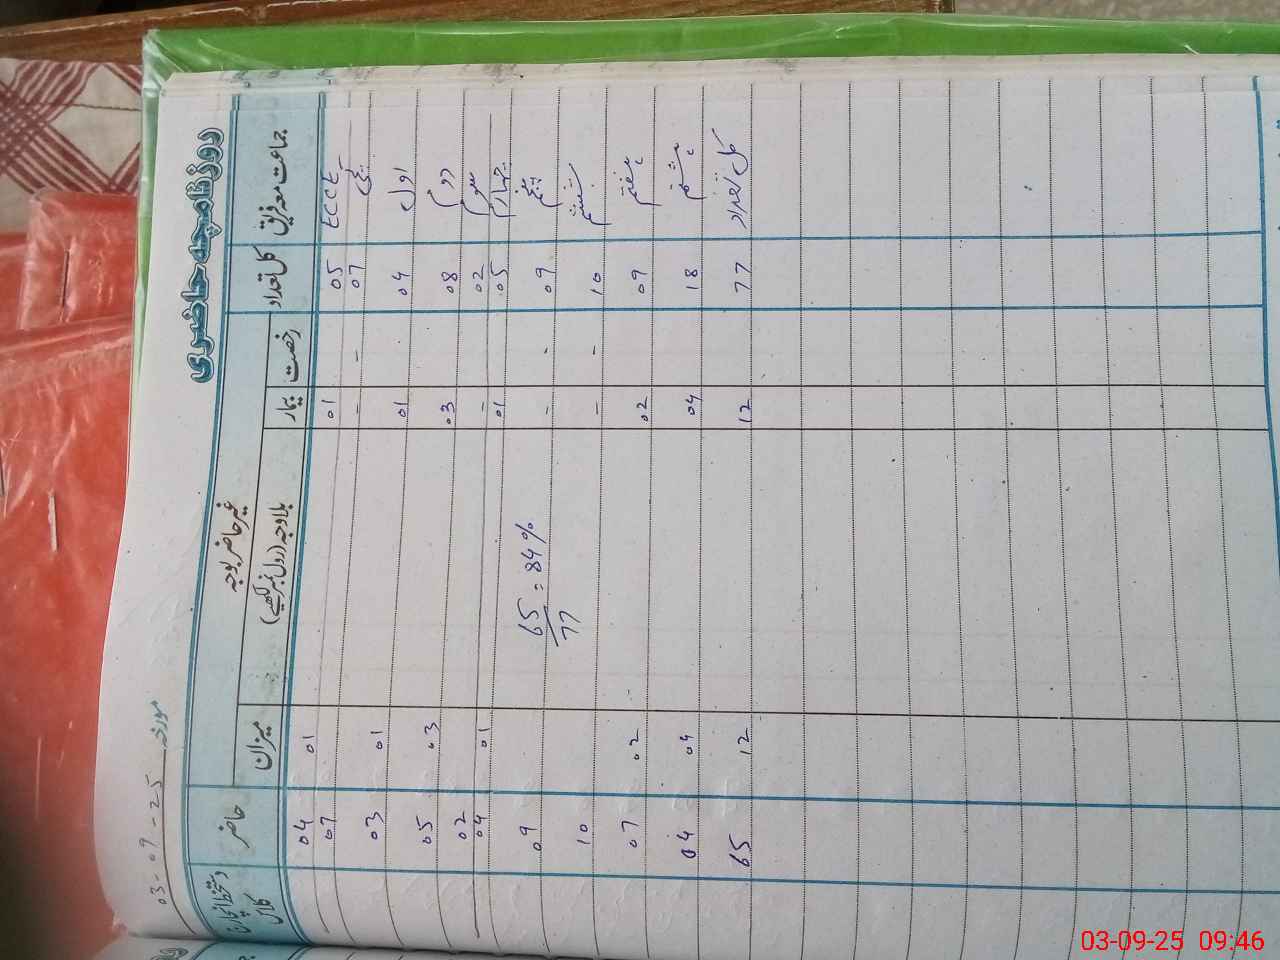 روزنامچہ حاضری
مورخہ 03-09-25
جماعت معہ فریق کل تعداد غیر حاضر بوجہ حاضر دستخط انچارج کلاس
رخصت بیمار بلاوجہ (رول نمبر لکھیے) میزان
ECCE 05 01 01 04
پکی 07 - - 07
اول 04 01 01 03
دوم 08 03 03 05
سوم 02 - 02
چہارم 05 01 01 04
پنجم 09 - - 09
ششم 10 - - 10
ہفتم 09 02 02 07
ہشتم 18 04 04
کل تعداد 77 12 12 65
65/77 = 84%
03-09-25 09:46